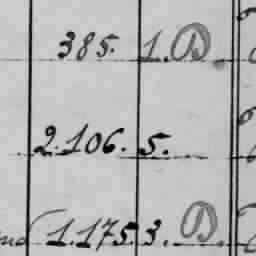 385. 1. D.
2.106. 5.
1.175 3. D.